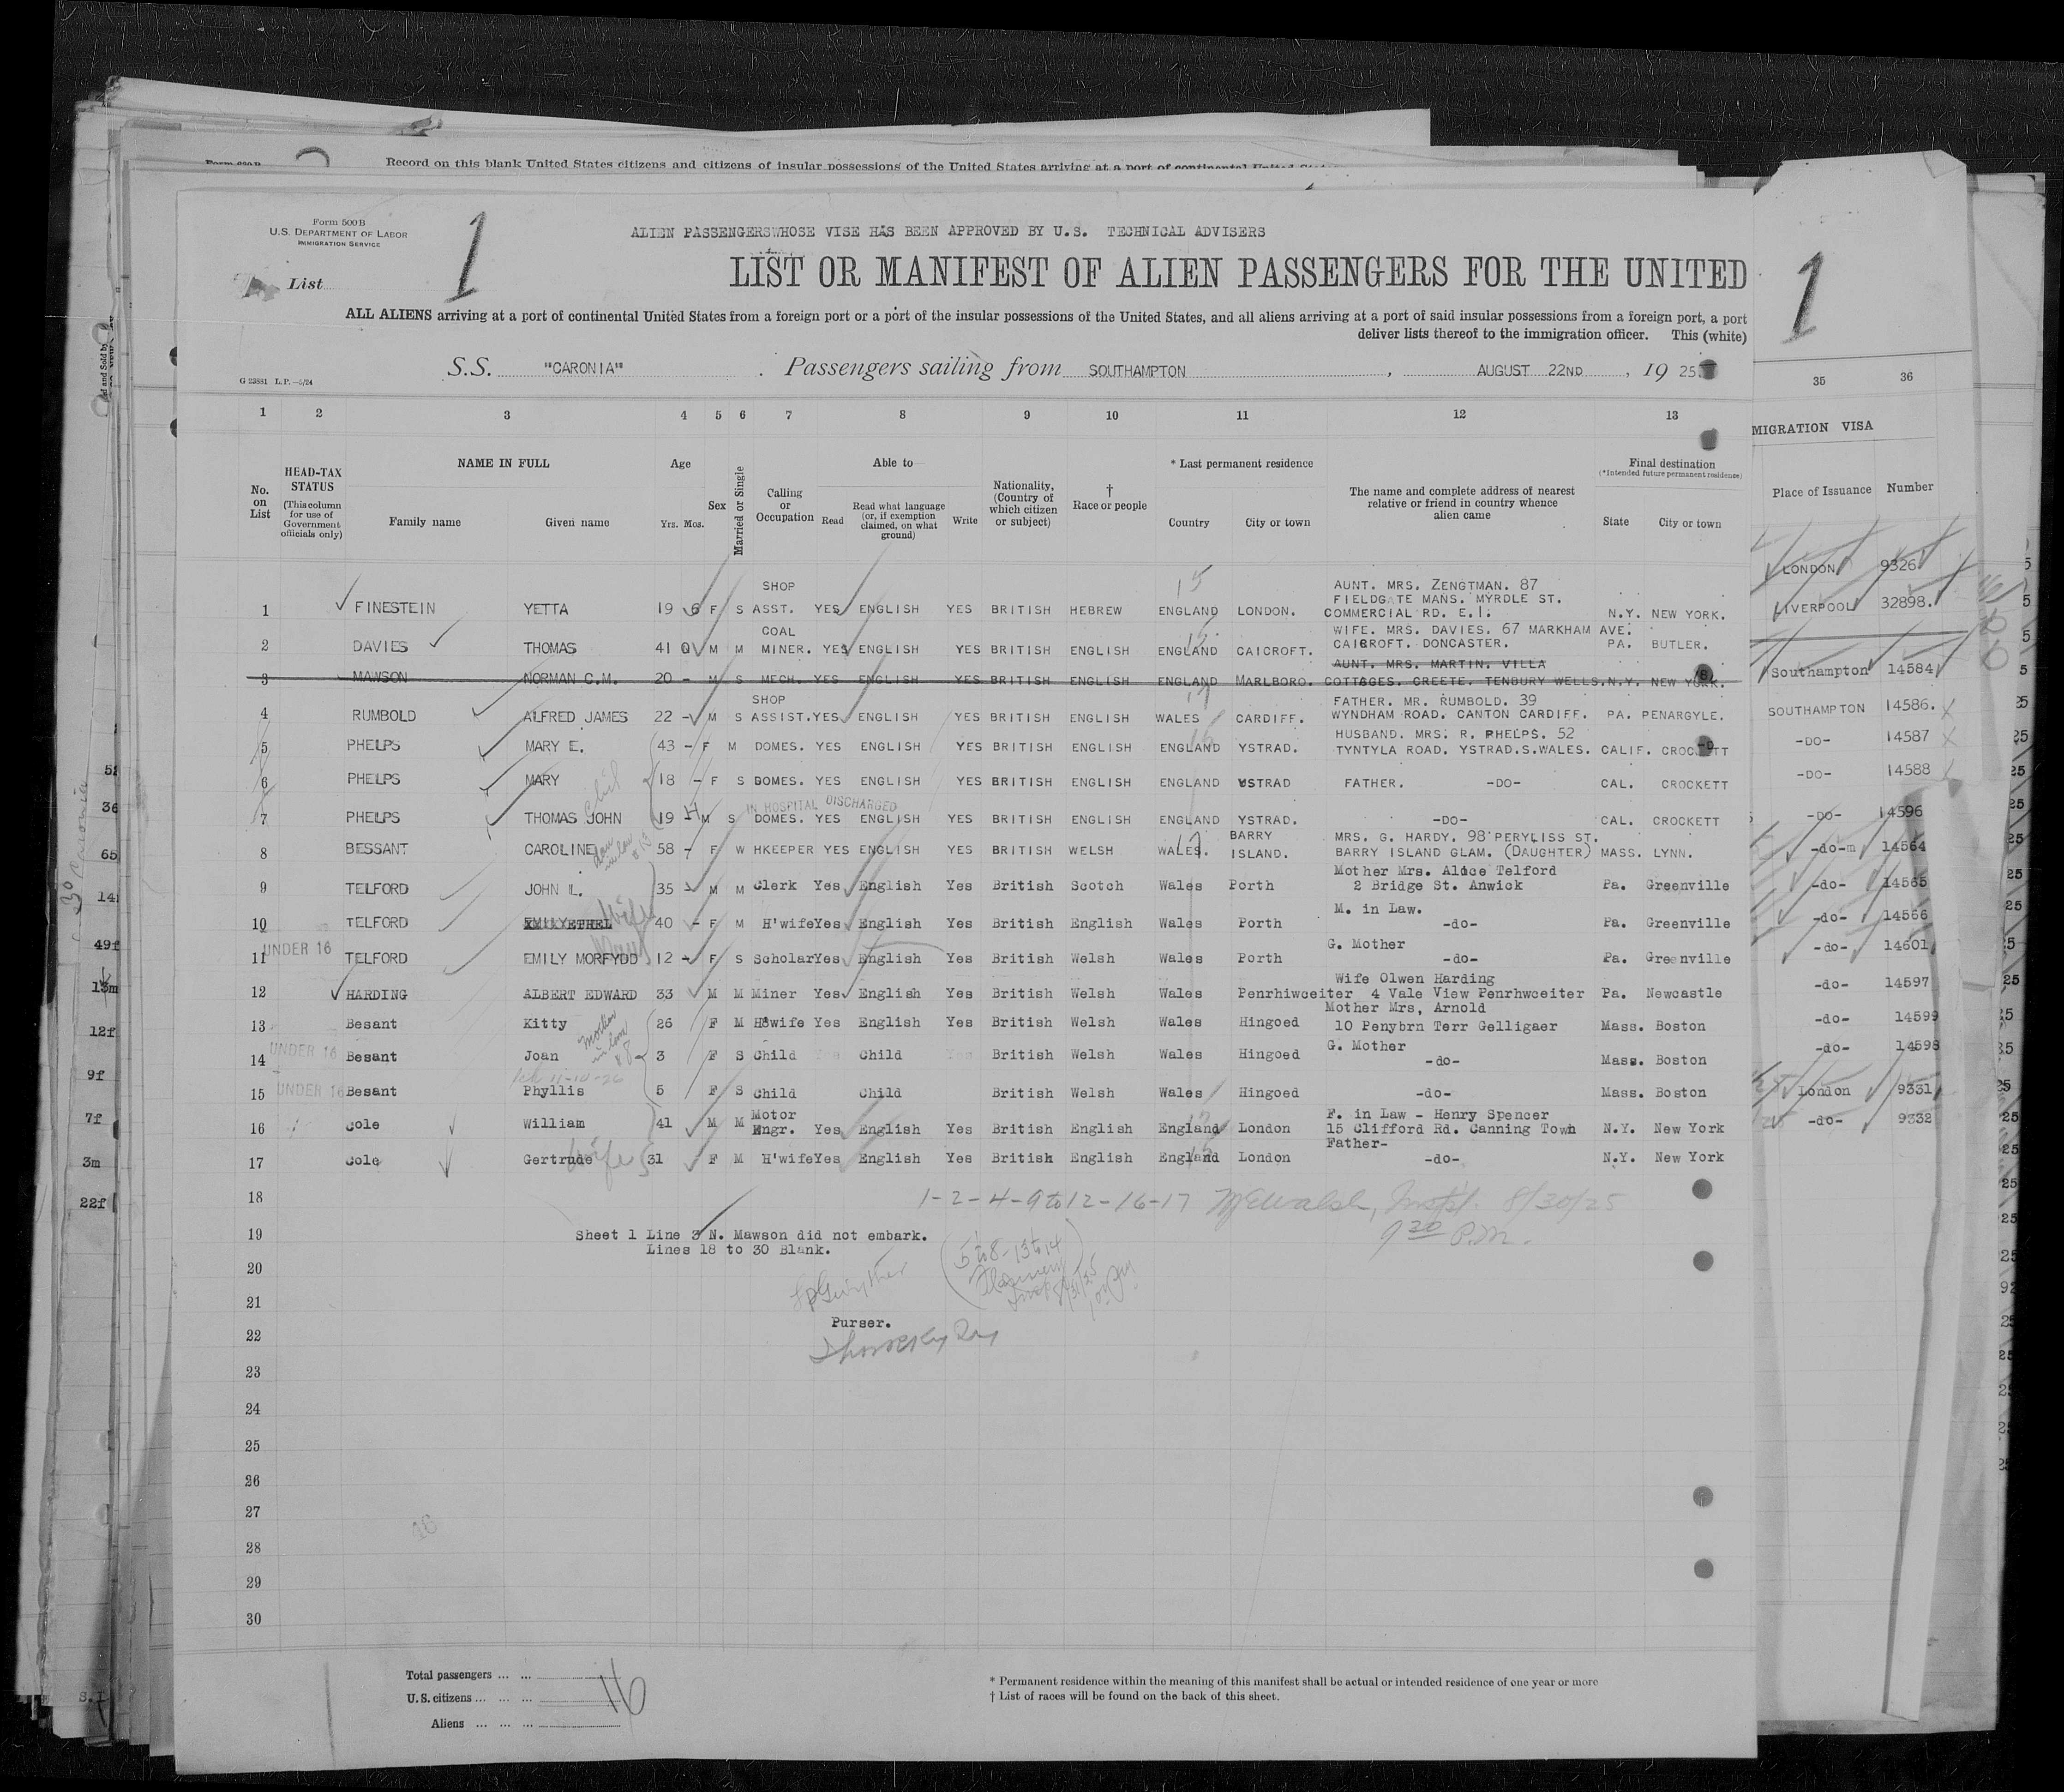 Record on this blank United States citizens and citizens of insular possessions of the United States arriving at a port of continental United
Form 500 B
U.S. DEPARTMENT OF LABOR
IMMIGRATION SERVICE
1
ALIEN PASSENGERS WHOSE VISE HAS BEEN APPROVED BY U.S. TECHNICAL ADVISERS
List
LIST OR MANIFEST OF ALIEN PASSENGERS FOR THE UNITED
1
ALL ALIENS arriving at a port of continental United States from a foreign port or a port of the insular possessions of the United States, and all aliens arriving at a port of said insular possessions from a foreign port, a port
deliver lists thereof to the immigration officer. This (white)
S.S. "CARONIA" . Passengers sailing from SOUTHAMPTON , AUGUST 22ND , 19 25
G 23881 L.P.—5/24
1 2 3 4 5 6 7 8 9 10 11 12 13 35 36
No. on List
HEAD-TAX STATUS (This column for use of Government officials only)
NAME IN FULL
Family name Given name
Age Yrs. Mos.
Sex
Married or Single
Calling or Occupation
Able to
Read Read what language (or, if exemption claimed, on what ground) Write
Nationality, (Country of which citizen or subject)
† Race or people
* Last permanent residence
Country City or town
The name and complete address of nearest relative or friend in country whence alien came
Final destination
(*Intended future permanent residence)
State City or town
MIGRATION VISA
Place of Issuance Number
SHOP AUNT. MRS. ZENGTMAN. 87
FIELDGATE MANS. MYRDLE ST.
1 FINESTEIN YETTA 19 6 F S ASST. YES ENGLISH YES BRITISH HEBREW ENGLAND LONDON. COMMERCIAL RD. E.1. N.Y. NEW YORK.
COAL WIFE. MRS. DAVIES. 67 MARKHAM AVE.
2 DAVIES THOMAS 41 0 M M MINER. YES ENGLISH YES BRITISH ENGLISH ENGLAND CAICROFT. CAICROFT. DONCASTER. PA. BUTLER.
AUNT. MRS. MARTIN. VILLA
3 MAWSON NORMAN C.M. 20 - M S MECH. YES ENGLISH YES BRITISH ENGLISH ENGLAND MARLBORO. COTTAGES. GREETE. TENBURY WELLS. N.Y. NEW YORK.
SHOP FATHER. MR. RUMBOLD. 39
4 RUMBOLD ALFRED JAMES 22 - M S ASSIST. YES ENGLISH YES BRITISH ENGLISH WALES CARDIFF. WYNDHAM ROAD. CANTON CARDIFF. PA. PENARGYLE.
HUSBAND. MRS. R. PHELPS. 52
5 PHELPS MARY E. 43 - F M DOMES. YES ENGLISH YES BRITISH ENGLISH ENGLAND YSTRAD. TYNTYLA ROAD. YSTRAD.S.WALES. CALIF. CROCKETT
6 PHELPS MARY 18 - F S DOMES. YES ENGLISH YES BRITISH ENGLISH ENGLAND YSTRAD FATHER. -DO- CAL. CROCKETT
IN HOSPITAL DISCHARGED
7 PHELPS THOMAS JOHN 19 - M S DOMES. YES ENGLISH YES BRITISH ENGLISH ENGLAND YSTRAD. -DO- CAL. CROCKETT
BARRY MRS. G. HARDY. 98 PERYLISS ST.
8 BESSANT CAROLINE 58 - F W HKEEPER YES ENGLISH YES BRITISH WELSH WALES. ISLAND. BARRY ISLAND GLAM. (DAUGHTER) MASS. LYNN.
Mother Mrs. Alice Telford
9 TELFORD JOHN L. 35 - M M Clerk Yes English Yes British Scotch Wales Porth 2 Bridge St. Anwick Pa. Greenville
M. in Law.
10 TELFORD EMILY ETHEL 40 - F M H'wife Yes English Yes British English Wales Porth -do- Pa. Greenville
UNDER 16 G. Mother
11 TELFORD EMILY MORFYDD 12 - F S Scholar Yes English Yes British Welsh Wales Porth -do- Pa. Greenville
Wife Olwen Harding
12 HARDING ALBERT EDWARD 33 M M Miner Yes English Yes British Welsh Wales Penrhiwceiter 4 Vale View Penrhwceiter Pa. Newcastle
Mother Mrs, Arnold
13 Besant Kitty 26 F M H'wife Yes English Yes British Welsh Wales Hingoed 10 Penybrn Terr Gelligaer Mass. Boston
UNDER 16 G. Mother
14 Besant Joan 3 F S Child Child British Welsh Wales Hingoed -do- Mass. Boston
15 UNDER 16 Besant Phyllis 5 F S Child Child British Welsh Wales Hingoed -do- Mass. Boston
Motor F. in Law - Henry Spencer
16 Cole William 41 M M Engr. Yes English Yes British English England London 15 Clifford Rd. Canning Town N.Y. New York
Father-
17 Cole Gertrude wife 31 F M H'wife Yes English Yes British English England London -do- N.Y. New York
LONDON 9326
LIVERPOOL 32898.
Southampton 14584
SOUTHAMPTON 14586.
-DO- 14587
-DO- 14588
-DO- 14596
-do-m 14564
-do- 14565
-do- 14566
-do- 14601
-do- 14597
-do- 14599
-do- 14598
London 9331
-do- 9332
18 1-2-4-9 to 12-16-17 8/30/25
9 30 P.M.
19 Sheet 1 Line 3 N. Mawson did not embark.
Lines 18 to 30 Blank.
20
21
Purser.
22
23
24
25
26
27
28
29
30
Total passengers ... ...
U.S. citizens ... ... ... 16
Aliens ... ... ...
* Permanent residence within the meaning of this manifest shall be actual or intended residence of one year or more
† List of races will be found on the back of this sheet.